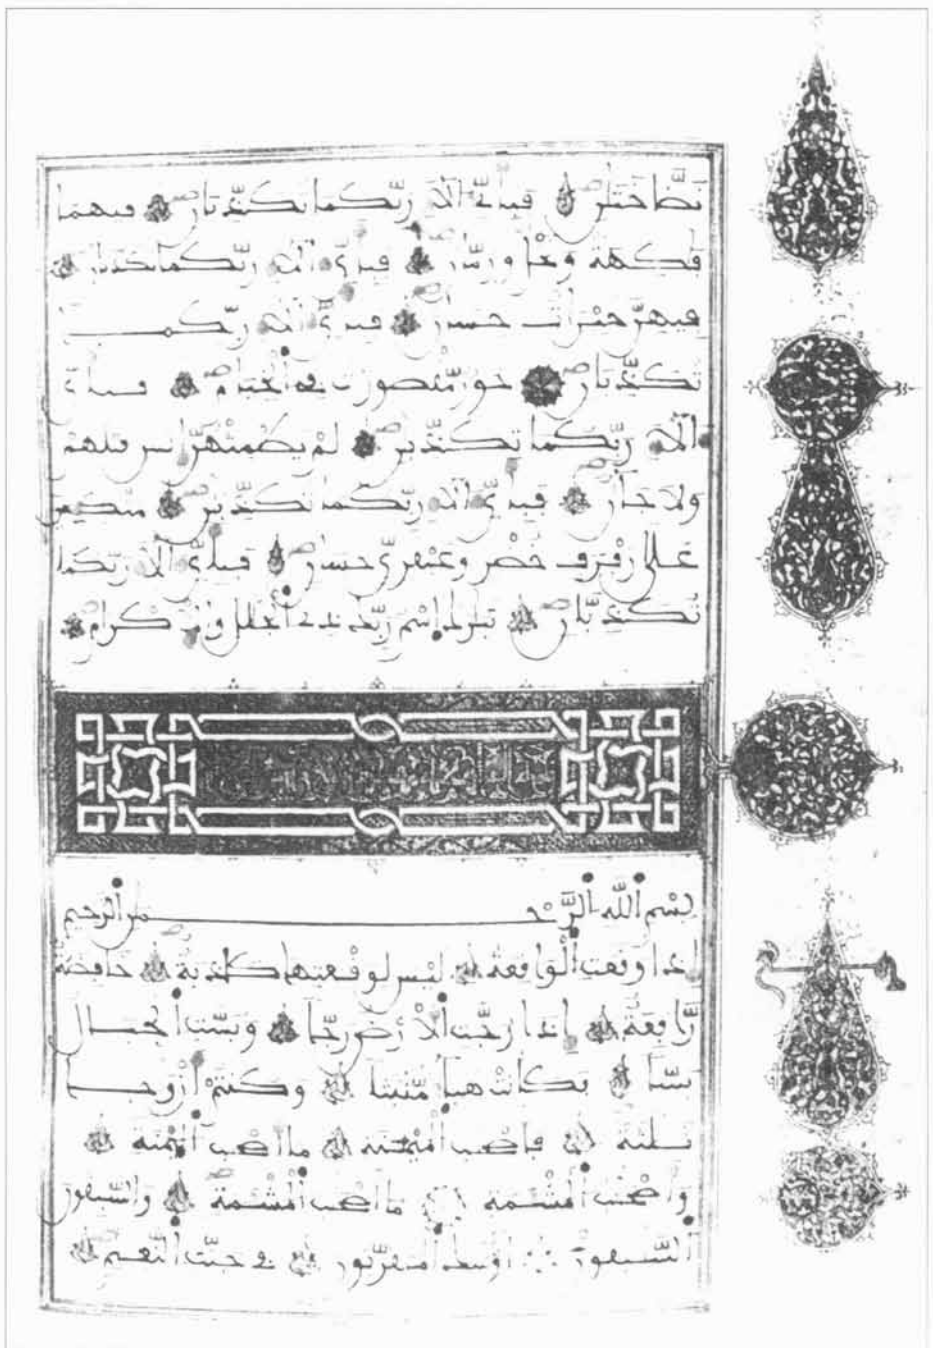 نَضَّاخَتَانِ فَبِأَيِّ ءَالَآءِ رَبِّكُمَا تُكَذِّبَانِ فِيهِمَا
فَكِهَةٌ وَنَخْلٌ وَرُمَّانٌ فَبِأَيِّ ءَالَآءِ رَبِّكُمَا تُكَذِّبَانِ
فِيهِنَّ خَيْرَاتٌ حِسَانٌ فَبِأَيِّ ءَالَآءِ رَبِّكُمَا
تُكَذِّبَانِ حُورٌ مَّقْصُورَتٌ فِي الْخِيَامِ فَبِأَيِّ
ءَالَآءِ رَبِّكُمَا تُكَذِّبَنِ لَمْ يَطْمِثْهُنَّ إِنسٌ قَبْلَهُمْ
وَلَا جَآنٌّ فَبِأَيِّ ءَالَآءِ رَبِّكُمَا تُكَذِّبَنِ مُتَّكِينَ
عَلَى رَفْرَفٍ خُضْرٍ وَعَبْقَرِيٍّ حِسَانٍ فَبِأَيِّ ءَالَآءِ رَبِّكُمَا
تُكَذِّبَانِ تَبَرَكَ اسْمُ رَبِّكَ ذِي الْجَلَلِ وَالْإِكْرَامِ
بِسْمِ اللَّهِ الرَّحْمَنِ الرَّحِيمِ
إِذَا وَقَعَتِ الْوَاقِعَةُ لَيْسَ لِوَقْعَتِهَا كَاذِبَةٌ خَافِضَةٌ
رَّافِعَةٌ إِذَا رُجَّتِ الْأَرْضُ رَجًّا وَبُسَّتِ الْجِبَالُ
بَسًّا فَكَانَتْ هَبَآءً مُّنْبَثًّا وَكُنتُمْ أَزْوَجًا
ثَلَثَةً فَأَصْحَبُ الْمَيْمَنَةِ مَا أَصْحَبُ الْمَيْمَنَةِ
وَأَصْحَبُ الْمَشْئَمَةِ مَا أَصْحَبُ الْمَشْئَمَةِ وَالسَّبِقُونَ
السَّبِقُونَ أُولَئِكَ الْمُقَرَّبُونَ فِي جَنَّتِ النَّعِيمِ